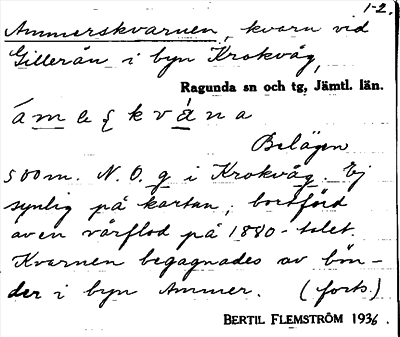 1-2.
Ammerskvarnen, kvarn vid
Gillerån i byn Krokvåg,
Ragunda sn och tg, Jämtl. län.
Belägen
500 m. N. O. g i Krokvåg. Ej
synlig på kartan; bortförd
av en vårflod på 1880-talet.
Kvarnen begagnades av bön-
der i byn Ammer. (forts.)
BERTIL FLEMSTRÖM 1936.